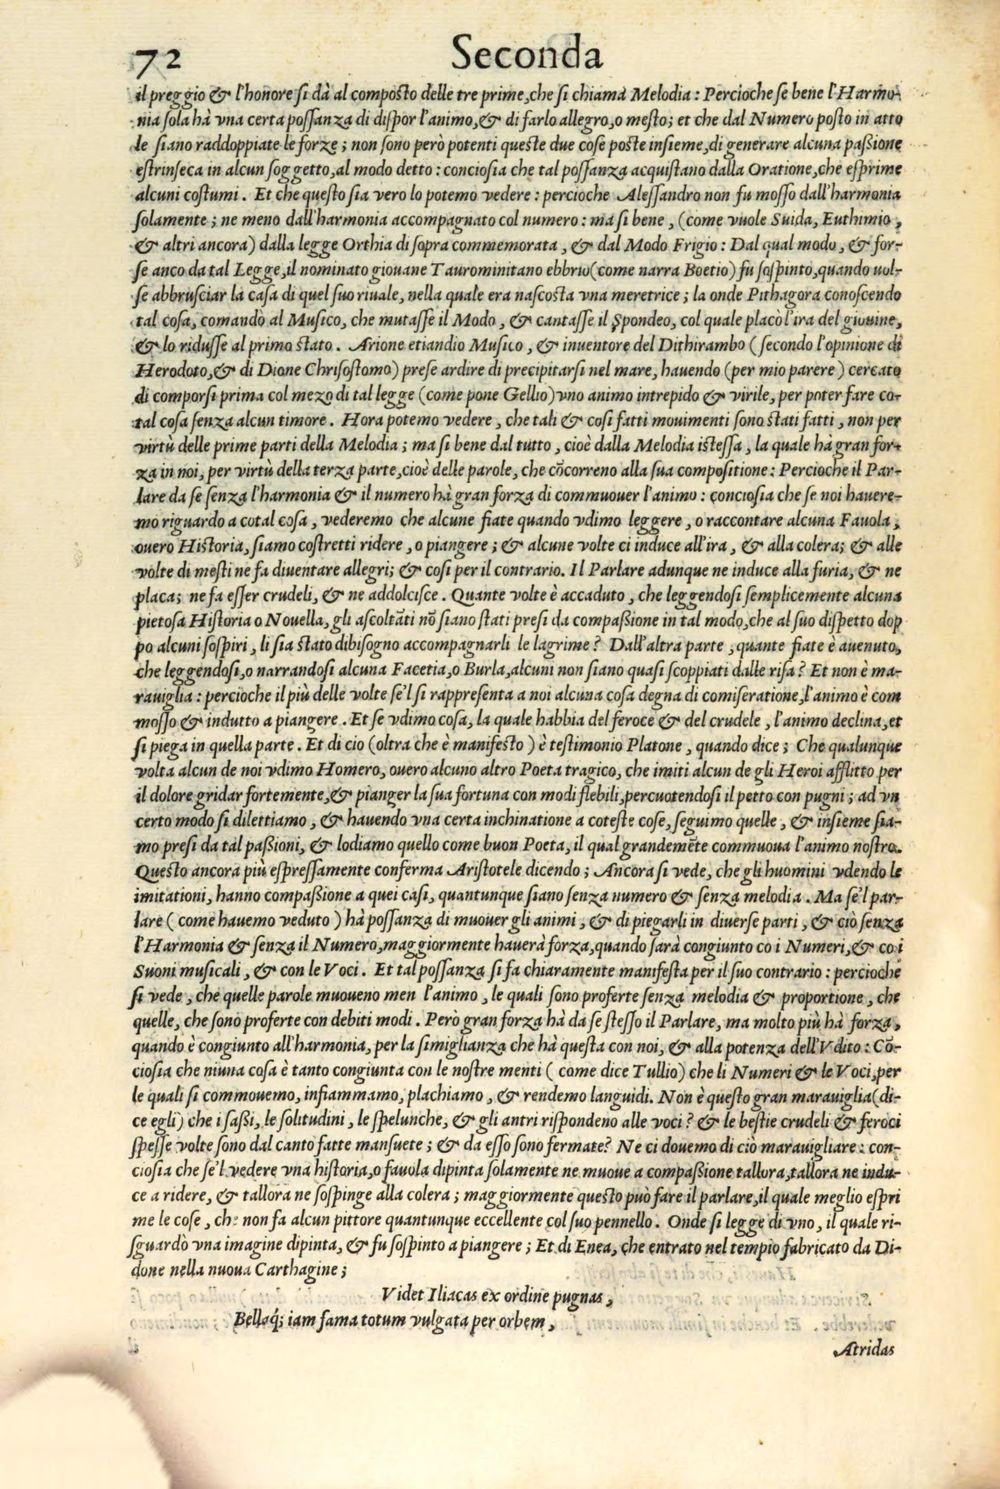 72 Seconda
il preggio & l'honore si dà al composto delle tre prime, che si chiama Melodia: Percioche se bene l'Harmo-
nia sola hà vna certa possanza di dispor l'animo, & di farlo allegro, o mesto; et che dal Numero posto in atto
le siano raddoppiate le forze; non sono però potenti queste due cose poste insieme, di generare alcuna passione
estrinseca in alcun soggetto, al modo detto: conciosia che tal possanza acquistano dalla Oratione, che esprime
alcuni costumi. Et che questo sia vero lo potemo vedere: percioche Alessandro non fu mosso dall'harmonia
solamente; ne meno dall'harmonia accompagnato col numero: ma si bene, (come vuole Suida, Euthimio,
& altri ancora) dalla legge Orthia di sopra commemorata, & dal Modo Frigio: Dal qual modo, & for-
se anco da tal Legge, il nominato giouane Taurominitano ebbrio (come narra Boetio) fu sospinto, quando uol-
se abbrusciar la casa di quel suo riuale, nella quale era nascosta vna meretrice; la onde Pithagora conoscendo
tal cosa, comandò al Musico, che mutasse il Modo, & cantasse il Spondeo, col quale placò l'ira del giouine,
& lo ridusse al primo stato. Arione etiandio Musico, & inuentore del Dithirambo (secondo l'opinione di
Herodoto, & di Dione Chrisostomo) prese ardire di precipitarsi nel mare, hauendo (per mio parere) cercato
di comporsi prima col mezo di tal legge (come pone Gellio) vno animo intrepido & virile, per poter fare co-
tal cosa senza alcun timore. Hora potemo vedere, che tali & cosi fatti mouimenti sono stati fatti, non per
virtù delle prime parti della Melodia; ma si bene dal tutto, cioè dalla Melodia istessa, la quale hà gran for-
za in noi, per virtù della terza parte, cioè delle parole, che cōcorreno alla sua compositione: Percioche il Par-
lare da se senza l'harmonia & il numero hà gran forza di commuouer l'animo: conciosia che se noi hauere-
mo riguardo a cotal cosa, vederemo che alcune fiate quando vdimo leggere, o raccontare alcuna Fauola,
ouero Historia, siamo costretti ridere, o piangere; & alcune volte ci induce all'ira, & alla colera; & alle
volte di mesti ne fa diuentare allegri; & cosi per il contrario. Il Parlare adunque ne induce alla furia, & ne
placa; ne fa esser crudeli, & ne addolcisce. Quante volte è accaduto, che leggendosi semplicemente alcuna
pietosa Historia o Nouella, gli ascoltāti nō siano stati presi da compassione in tal modo, che al suo dispetto dop
po alcuni sospiri, li sia stato dibisogno accompagnarli le lagrime? Dall'altra parte, quante fiate è auenuto,
che leggendosi, o narrandosi alcuna Facetia, o Burla, alcuni non siano quasi scoppiati dalle risa? Et non è ma-
rauiglia: percioche il più delle volte se'l si rappresenta a noi alcuna cosa degna di comiseratione, l'animo è com
mosso & indutto a piangere. Et se vdimo cosa, la quale habbia del feroce & del crudele, l'animo declina, et
si piega in quella parte. Et di cio (oltra che è manifesto) è testimonio Platone, quando dice; Che qualunque
volta alcun de noi vdimo Homero, ouero alcuno altro Poeta tragico, che imiti alcun de gli Heroi afflitto per
il dolore gridar fortemente, & pianger la sua fortuna con modi flebili, percuotendosi il petto con pugni; ad vn
certo modo si dilettiamo, & hauendo vna certa inchinatione a coteste cose, seguimo quelle, & insieme sia-
mo presi da tal passioni, & lodiamo quello come buon Poeta, il qual grandemēte commuoua l'animo nostro.
Questo ancora più espressamente conferma Aristotele dicendo; Ancora si vede, che gli huomini vdendo le
imitationi, hanno compassione a quei casi, quantunque siano senza numero & senza melodia. Ma se'l par-
lare (come hauemo veduto) hà possanza di muouer gli animi, & di piegarli in diuerse parti, & ciò senza
l'Harmonia & senza il Numero, maggiormente hauerà forza, quando sarà congiunto co i Numeri, & co i
Suoni musicali, & con le Voci. Et tal possanza si fa chiaramente manifesta per il suo contrario: percioche
si vede, che quelle parole muoueno men l'animo, le quali sono proferte senza melodia & proportione, che
quelle, che sono proferte con debiti modi. Però gran forza hà da se stesso il Parlare, ma molto più hà forza,
quando è congiunto all'harmonia, per la simiglianza che hà questa con noi, & alla potenza dell'Vdito: Cō-
ciosia che niuna cosa è tanto congiunta con le nostre menti (come dice Tullio) che li Numeri & le Voci, per
le quali si commouemo, infiammamo, plachiamo, & rendemo languidi. Non è questo gran marauiglia (di-
ce egli) che i sassi, le solitudini, le spelunche, & gli antri rispondeno alle voci? & le bestie crudeli & feroci
spesse volte sono dal canto fatte mansuete; & da esso sono fermate? Ne ci douemo di ciò marauigliare: con-
ciosia che se'l vedere vna historia, o fauola dipinta solamente ne muoue a compassione tallora, tallora ne indu-
ce a ridere, & tallora ne sospinge alla colera; maggiormente questo può fare il parlare, il quale meglio espri
me le cose, che non fa alcun pittore quantunque eccellente col suo pennello. Onde si legge di vno, il quale ri-
sguardò vna imagine dipinta, & fu sospinto a piangere; Et di Enea, che entrato nel tempio fabricato da Di-
done nella nuoua Carthagine;
Videt Iliacas ex ordine pugnas,
Bellaq́; iam fama totum vulgata per orbem,
Atridas